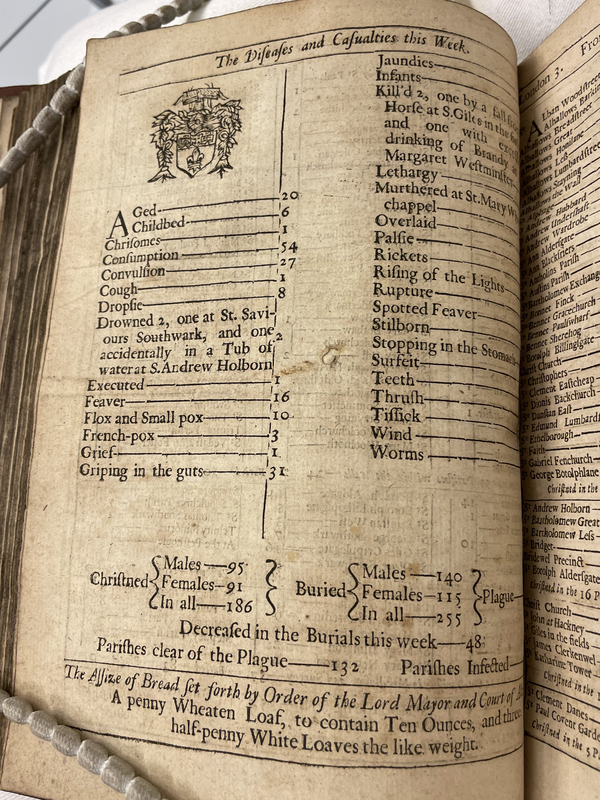 The Diſeaſes and Caſualties this Week.
AGed 20
Childbed 6
Chriſomes 1
Conſumption 54
Convulſion 27
Cough 1
Dropſie 8
Drowned 2, one at St. Savi-
ours Southwark, and one
accidentally in a Tub of
water at S. Andrew Holborn 2
Executed 1
Feaver 16
Flox and Small pox 10
French-pox 3
Grief 1
Griping in the guts 31
Jaundies
Infants
Kill'd 2, one by a fall
Horſe at S. Giles in the
and one with
drinking of Brandy
Margaret Weſtminſter
Lethargy
Murthered at St. Mary
chappel
Overlaid
Palſie
Rickets
Riſing of the Lights
Rupture
Spotted Feaver
Stilborn
Stopping in the Stomach
Surfeit
Teeth
Thruſh
Tiſſick
Wind
Worms
Chriſtned
Males 95
Females 91
In all 186
Buried
Males 140
Females 115
In all 255
Plague
Decreaſed in the Burials this week 48
Pariſhes clear of the Plague 132 Pariſhes Infected
The Aſſize of Bread ſet forth by Order of the Lord Mayor and Court of
A penny Wheaten Loaf, to contain Ten Ounces, and three
half-penny White Loaves the like weight.
London 3. Fro
Alban Woodſtreet
Alhallows Barkin
Alhallows Breadſtreet
Alhallows Great
Alhallows Honilane
Alhallows Leſs
Alhallows Lumbardſtree
Alhallows Staining
Alhallows the Wall
Hubbard
Andrew Underſhaft
Andrew Wardrobe
Ann Alderſgate
Ann Blackfriers
Pariſh
Auſtins Pariſh
Bartholomew Exchang
Bennet Finck
Bennet Gracechurch
Bennet Paulſwharf
Bennet Sherehog
Botolph Billingſgate
Church
Chriſtophers
Clement Eaſtcheap
Dionis Backchurch
Dunſtan Eaſt
Edmund Lumbardſ
Ethelborough
Faith
Gabriel Fenchurch
George Botolphlane
Chriſtned in the
St Andrew Holborn
St Bartholomew Great
St Bartholomew Leſs
Bridget
Bridewel Precinct
Botolph Alderſgate
Chriſtned in the 16 P
Chriſt Church
John at Hackney
Giles in the fields
James Clerkenwel
Katharine Tower
Chriſtned in the
St Clement Danes
St Paul Covent Garde
Chriſtned in the 5 P